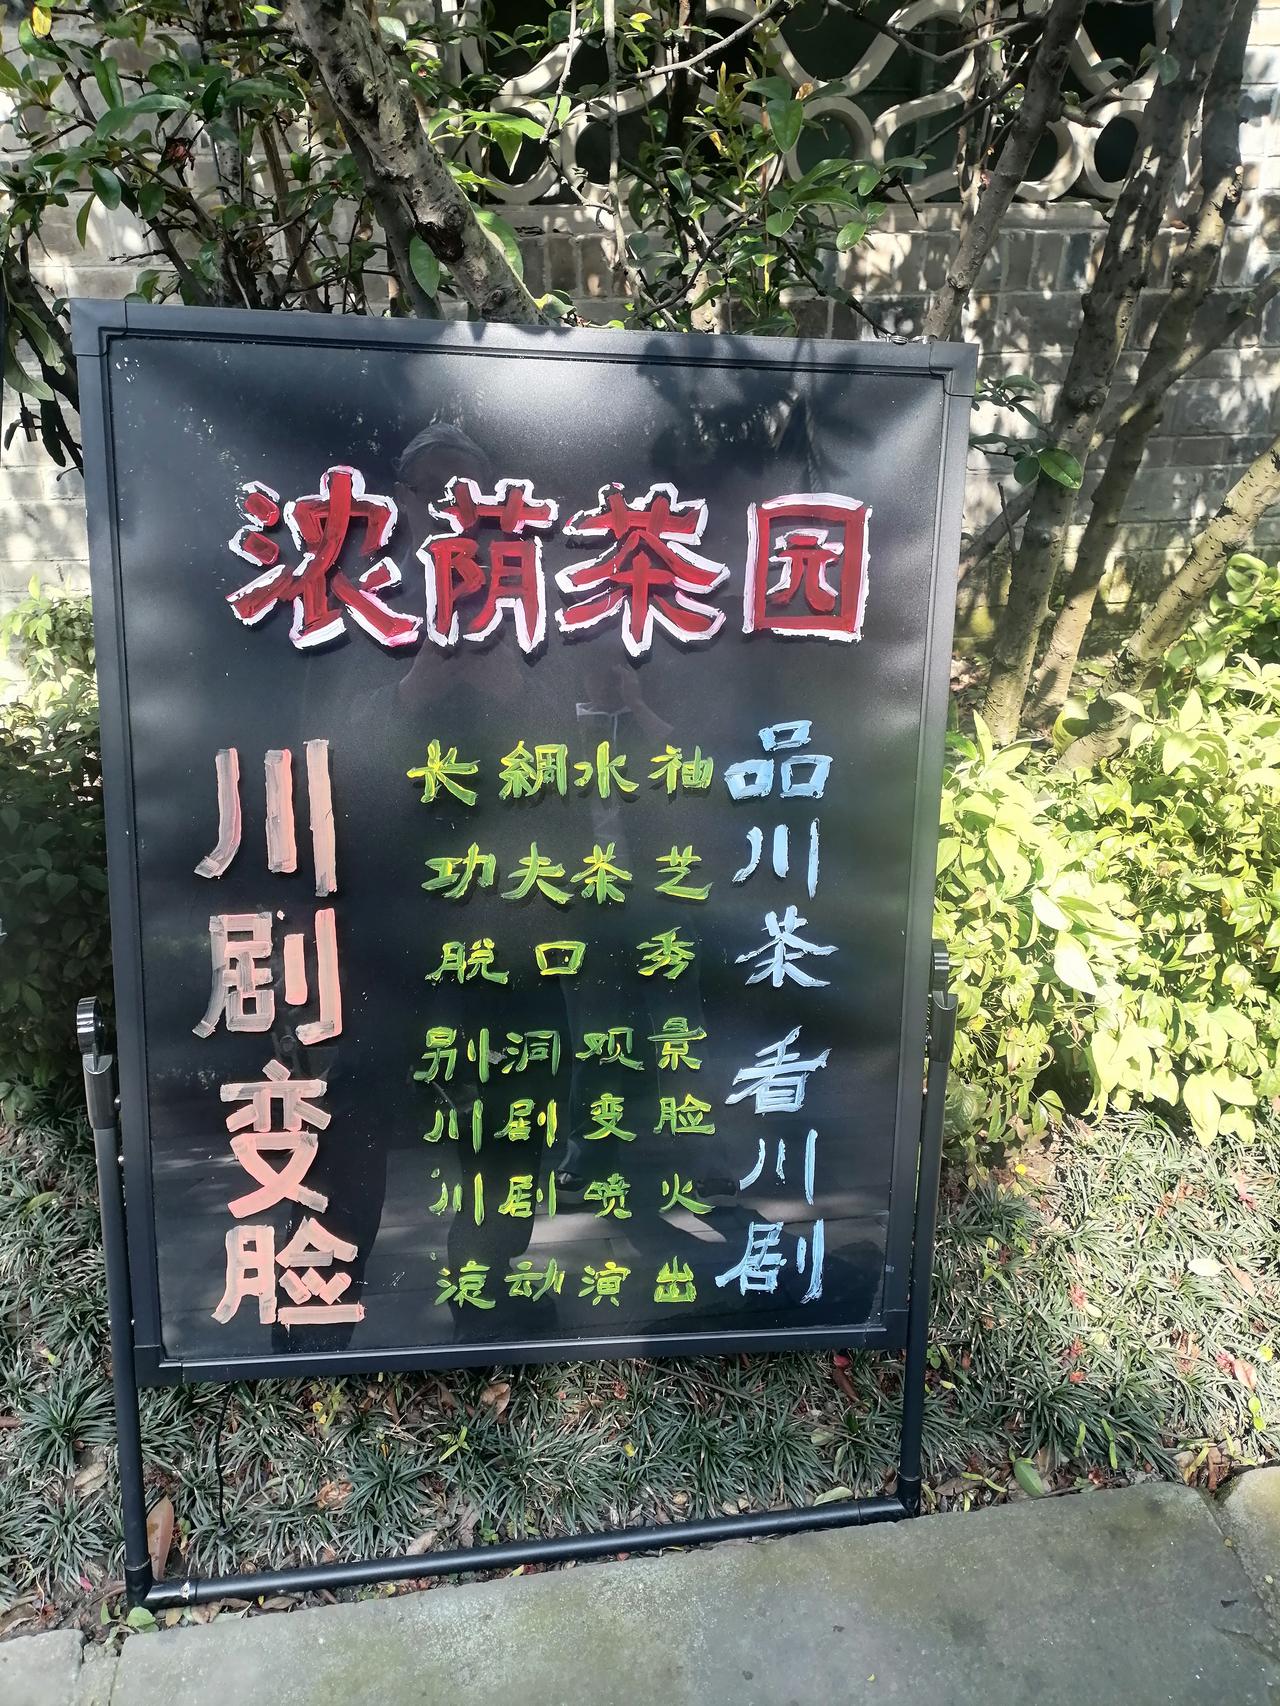 浓荫茶园
川剧变脸
长綢水袖
功夫茶芝
脱口秀
别洞观景
川剧变脸
川剧喷火
滚动演出
品川茶 看川剧